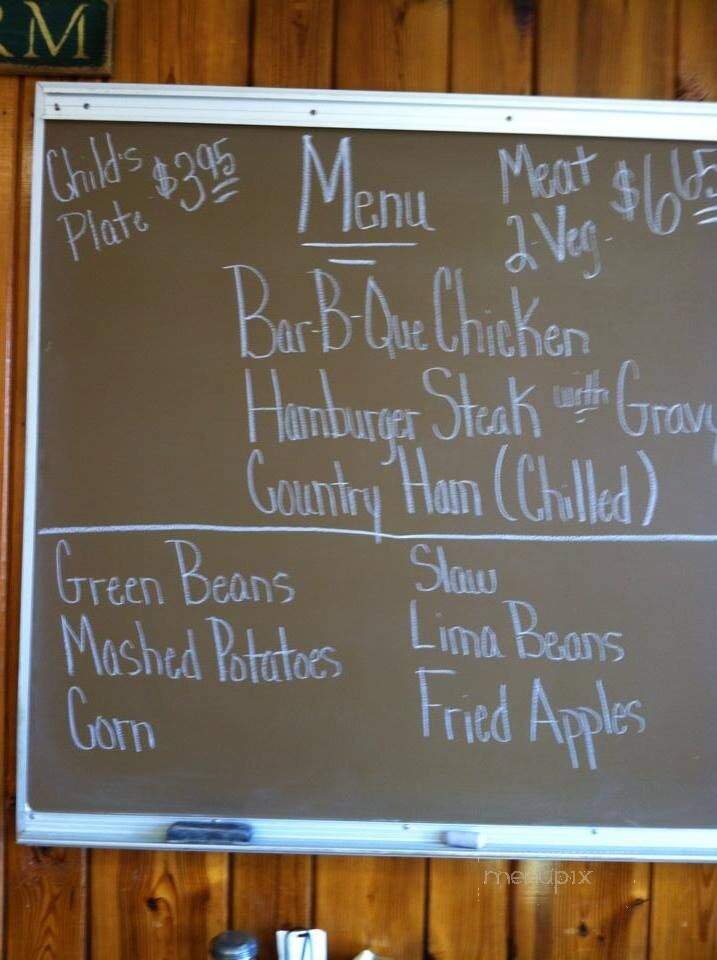 RM
Child's
Plate $3.95
Menu
Meat
2-Veg. $6.65
Bar-B-Que Chicken
Hamburger Steak with Gravy
Country Ham (Chilled)
Green Beans
Mashed Potatoes
Corn
Slaw
Lima Beans
Fried Apples
menupix